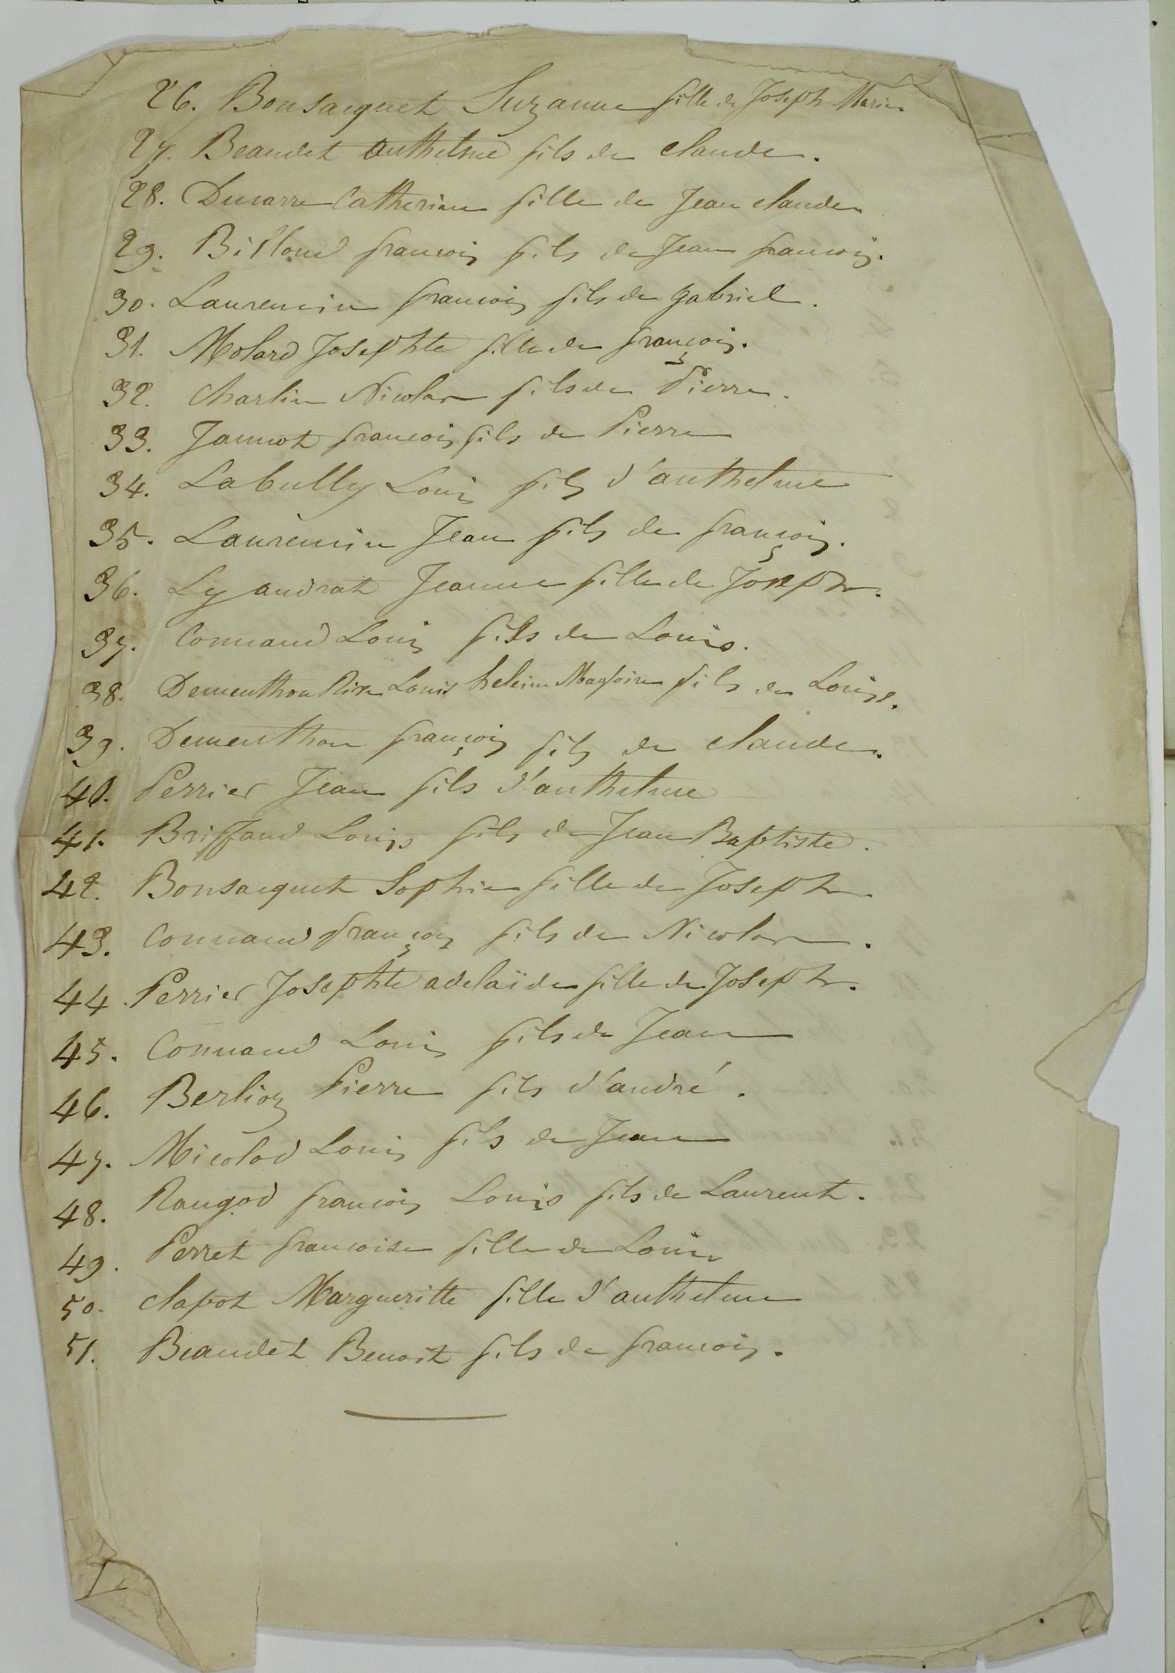 26. Bonsacquet Suzanne fille de Joseph Marie
27. Beaudet anthelme fils de claude.
28. Ducarre Catherine fille de Jean claude
29. Billoud françois fils de Jean françois.
30. Laurencin françois fils de gabriel.
31. Molard Josephte fille de françois.
32. Charlin Nicolas fils de Pierre.
33. Jannot françois fils de Pierre
34. Labully Louis fils d'anthelme
35. Laurencin Jean fils de françois.
36. Lyaudrat Jeanne fille de Joseph.
37. Connand Louis fils de Louis.
38. Dementhon Louis fils de Louis.
39. Dementhon françois fils de claude.
40. Perrier Jean fils d'anthelme
41. Briffaud Louis fils de Jean Baptiste.
42. Bonsacquet Sophie fille de Joseph
43. Connand françois fils de Nicolas.
44. Perrier Josephte adelaïde fille de Joseph.
45. Connand Louis fils de Jean
46. Berlioz Pierre fils d'andré.
47. Micolod Louis fils de Jean
48. Rangod françois Louis fils de Laurent.
49. Perret françoise fille de Louis
50. clapot Margueritte fille d'anthelme
51. Beaudet Benoit fils de françois.